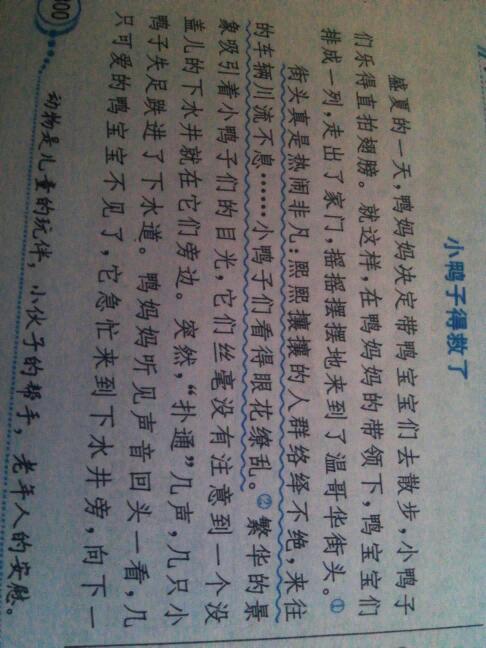 小鸭子得救了
盛夏的一天，鸭妈妈决定带鸭宝宝们去散步，小鸭子
们乐得直拍翅膀。就这样，在鸭妈妈的带领下，鸭宝宝们
排成一列，走出了家门，摇摇摆摆地来到了温哥华街头。①
街头真是热闹非凡：熙熙攘攘的人群络绎不绝，来往
的车辆川流不息……小鸭子们看得眼花缭乱。②繁华的景
象吸引着小鸭子们的目光，它们丝毫没有注意到一个没
盖儿的下水井就在它们旁边。突然，“扑通”几声，几只小
鸭子失足跌进了下水道。鸭妈妈听见声音回头一看，几
只可爱的鸭宝宝不见了，它急忙来到下水井旁，向下一
动物是儿童的玩伴，小伙子的帮手，老年人的安慰。